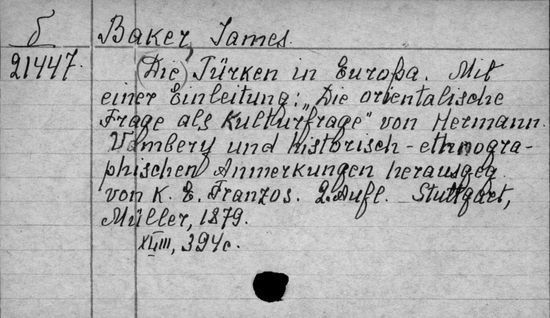 б
21447.
Baker, James.
(Die) Türken in Europa. Mit
einer Einleitung: „Die orientalische
Frage als Kulturfrage" von Hermann
Vambery und historisch-ethnogra-
phischen Anmerkungen herausgeg.
von K. E. Franzos. 2. Aufl. Stuttgart,
Müller, 1879.
XLIII, 394 c.